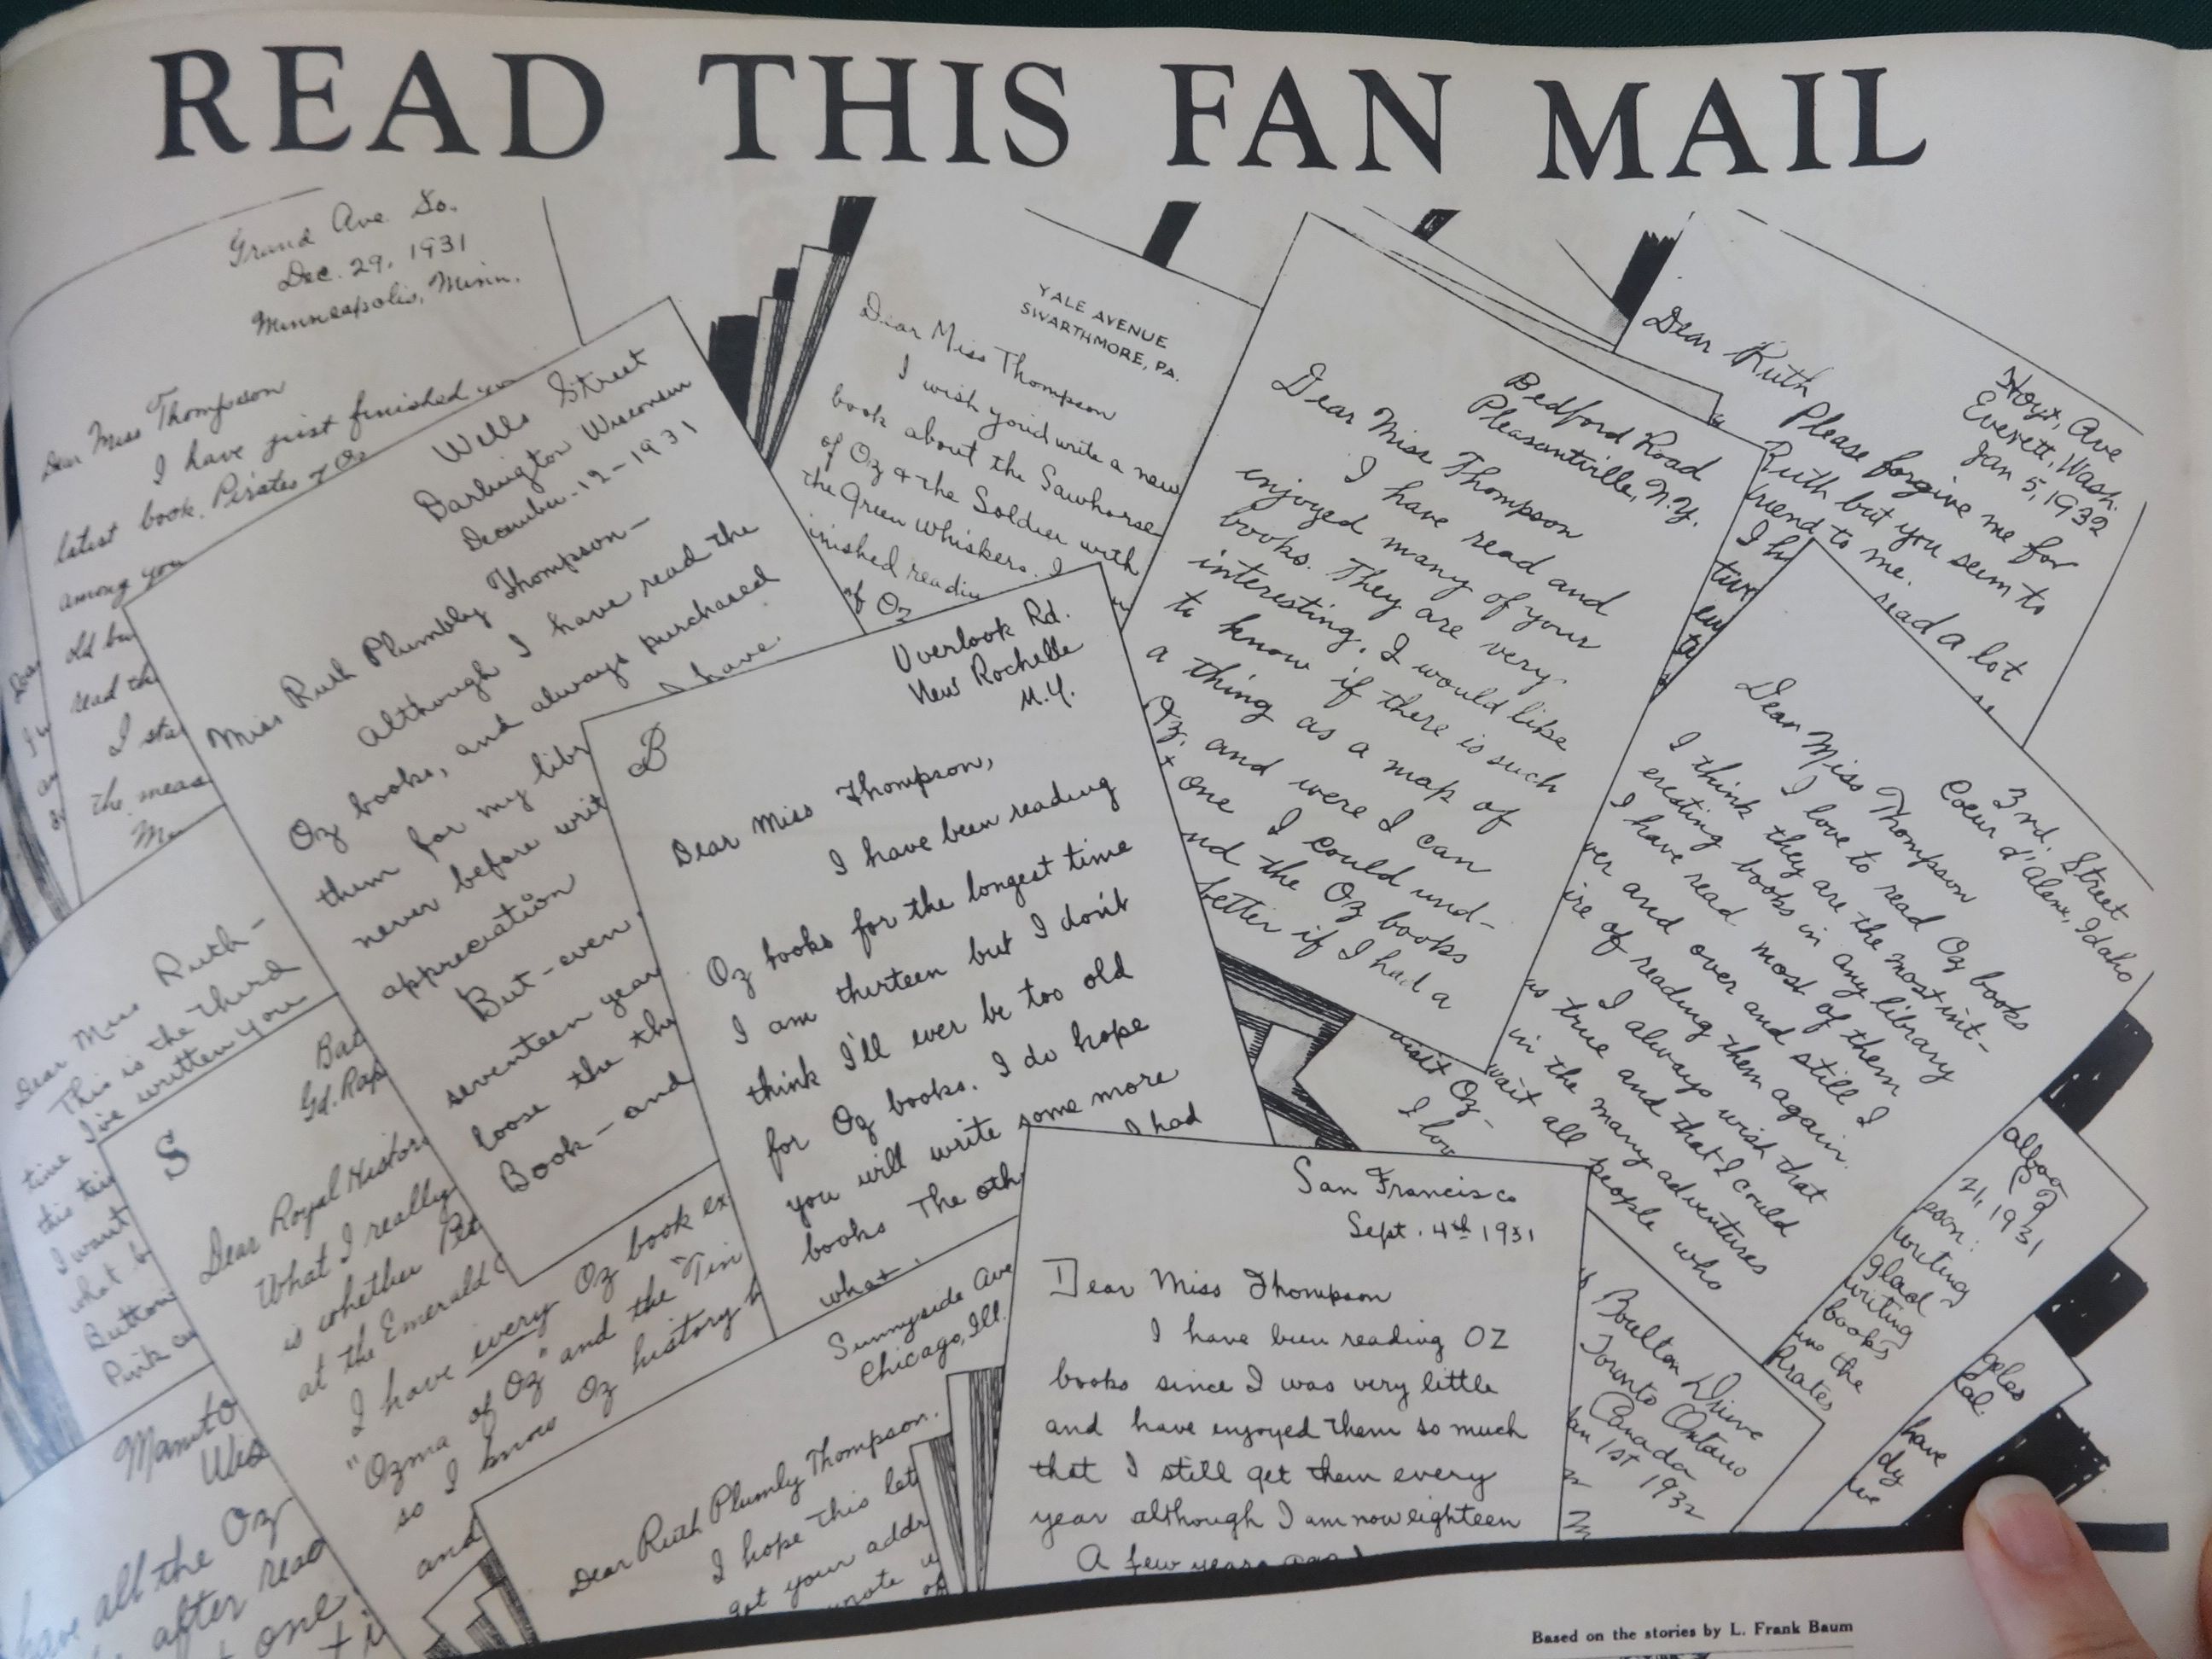 READ THIS FAN MAIL
Grand Ave. So.
Dec. 29, 1931
Minneapolis, Minn.
Dear Miss Thompson
I have just finished
latest book, Pirates of Oz
among you
old
read th
I sta
the meas
Wells Street
Darlington Wisconsin
December-12-1931
Miss Ruth Plumbly Thompson—
Although I have read the
Oz books, and always purchased
them for my libr
I have.
never before writ
appreciation
But-even
seventeen year
loose the th
Book-and
YALE AVENUE
SWARTHMORE, PA.
Dear Miss Thompson
I wish you'd write a new
book about the Sawhorse
of Oz & the Soldier with
the Green Whiskers. I
inished readin
of Oz
Bedford Road
Pleasantville, N.Y.
Dear Miss Thompson
I have read and
enjoyed many of your
books. They are very
interesting. I would like
to know if there is such
a thing as a map of
Oz, and were I can
one I could und-
nd the Oz books
better if I had a
Hoyt, Ave
Everett, Wash.
Jan 5, 1932
Dear Ruth
Please forgive me for
Ruth but you seem to
friend to me.
read a lot
Overlook Rd.
New Rochelle
N.Y.
B
Dear Miss Thompson,
I have been reading
Oz books for the longest time
I am thirteen but I don't
think I'll ever be too old
for Oz books. I do hope
you will write some more
books The oth
I had
what
3rd. Street
Coeur d'alene, Idaho
Dear Miss Thompson
I love to read Oz books
I think they are the most int-
eresting books in any library
I have read most of them
ver and over and still I
ire of reading them again.
I always wish that
us true and that I could
in the many adventures
wait all people who
visit Oz-
I lov
Dear Miss Ruth-
This is the third
time I've written you
this
I want
what b
Button
Pink
S
Gd. Rap
Dear Royal Histor
What I really
is whether Pet
at the Emerald C
I have every Oz book ex
"Ozma of Oz" and the "Tin
so I know Oz history
and
Manito
Wis
have all the Oz
after read
one
Sunnyside Ave
Chicago, Ill.
Dear Ruth Plumly Thompson.
I hope this let
get your addr
wrote
of
San Francisco
Sept. 4th 1931
Dear Miss Thompson
I have been reading OZ
books since I was very little
and have enjoyed them so much
that I still get them every
year although I am now eighteen
A few years ago I
Boulton Drive
Toronto Ontario
Canada
Jan 1st 1932
Pa
21, 1931
pson:
writing
glad
writing
books
the
Pirates
geles
Cal.
have
dy
Based on the stories by L. Frank Baum